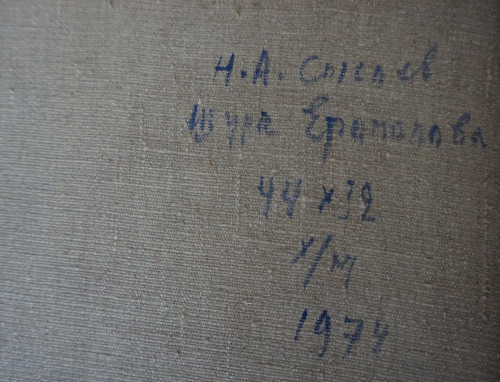 Н.А. Сысоев
Шура Ерополова
44 х 32
х/м
1974